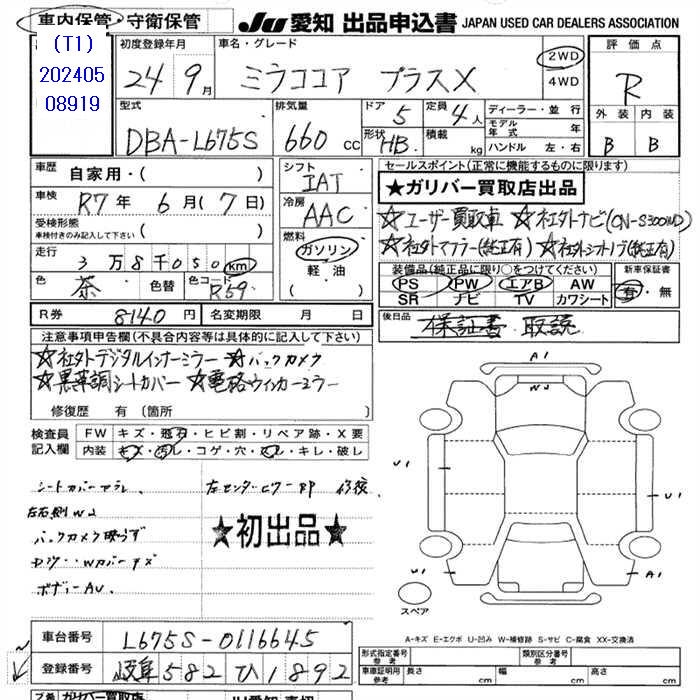 車内保管・守衛保管
JU 愛知 出品申込書 JAPAN USED CAR DEALERS ASSOCIATION
(T1)
202405
08919
初度登録年月
24 9月
車名・グレード
ミラココア プラスX
2WD
4WD
評価点
R
型式
DBA-L675S
排気量
660 cc
ドア 5
定員 4人
形状 HB
積載 kg
ディーラー・並行
モデル年式 年
ハンドル 左・右
外装 内装
B B
車歴 自家用・( )
車検 R7年 6月(7日)
受検形態
車検付きのみ記入して下さい ( )
走行 3万8千050 km
色 茶 色替 色コード R59
シフト
IAT
冷房
AAC
燃料
ガソリン
軽油
( )
セールスポイント(正常に機能するものに限ります)
★ガリバー買取店出品
☆ユーザー買取車 ☆社外ナビ(CN-S300WD)
☆社外マフラー(純正有) ☆社外シフトノブ(純正有)
装備品(純正品に限り○をつけてください)
PS PW エアB AW
SR ナビ TV カワシート
新車保証書
有・無
R券 8140円 名変期限 月 日
後日品 保証書 取説
注意事項申告欄(不具合内容等は具体的に記入して下さい)
☆社外デジタルインナーミラー ☆バックカメラ
☆黒革調シートカバー ☆電格ウィンカーミラー
修復歴 有 (箇所
検査員記入欄
FW キズ・飛石・ヒビ割・リペア跡・X要
内装 キズ・汚レ・コゲ・穴・スレ・キレ・破レ
シートカバースレ、
左右側W2
バックカメラ映らず
ボディーAU、
★初出品★
A1
W2
U1
U1
U1
A1
スペア
A-キズ E-エクボ U-凹み W-補修跡 S-サビ C-腐食 XX-交換済
車台番号 L675S-0116645
登録番号 岐阜582ひ1892
形式指定番号
参考
類別区分番号
参考
車庫証明用
参考
長さ cm 幅 cm 高さ cm
ガリバー買取店